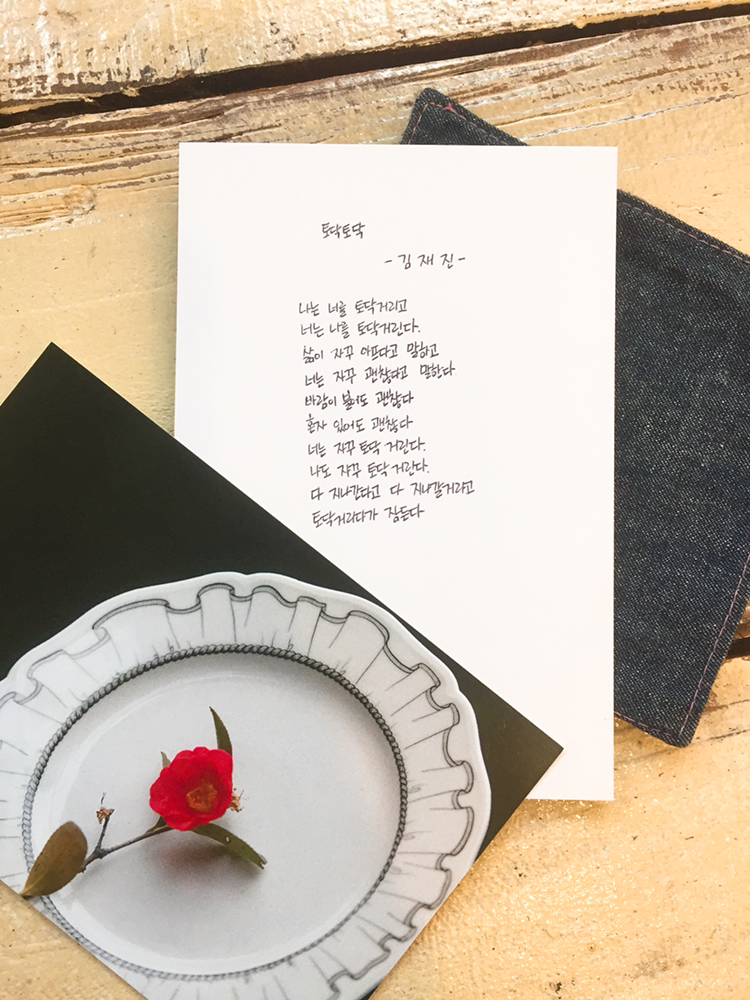 토닥토닥
- 김 재 진 -
나는 너를 토닥거리고
너는 나를 토닥거린다.
삶이 자꾸 아프다고 말하고
너는 자꾸 괜찮다고 말한다
바람이 불어도 괜찮다
혼자 있어도 괜찮다
너는 자꾸 토닥 거린다.
나도 자꾸 토닥 거린다.
다 지나간다고 다 지나갈거라고
토닥거리다가 잠든다